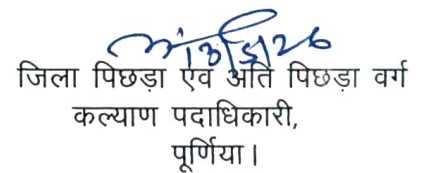 जिला पिछड़ा एवं अति पिछड़ा वर्ग
कल्याण पदाधिकारी,
पूर्णिया।